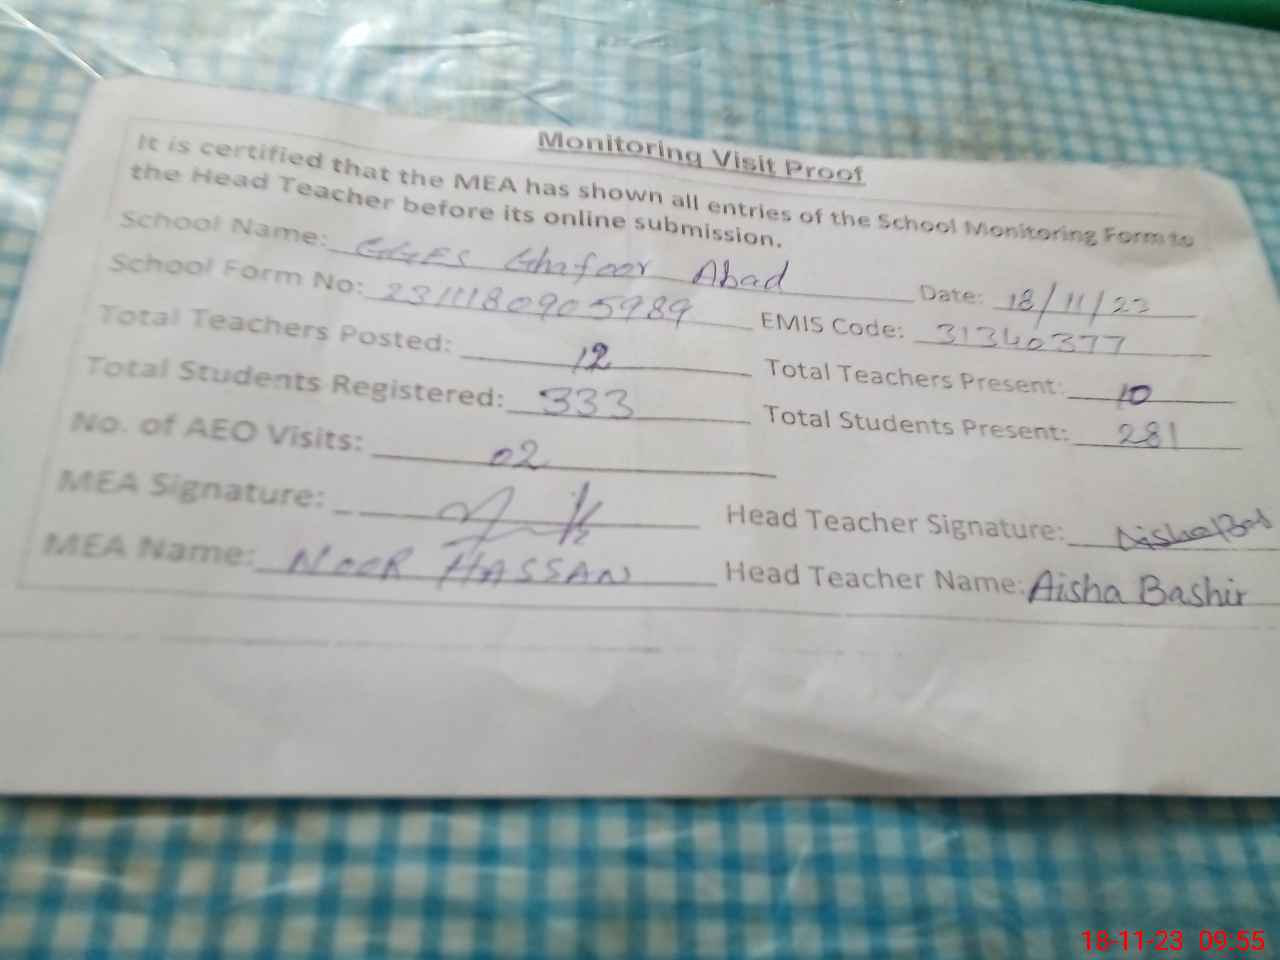 Monitoring Visit Proof
It is certified that the MEA has shown all entries of the School Monitoring Form to
the Head Teacher before its online submission.
School Name: GGES Ghafoor Abad Date: 18/11/23
School Form No: 2311180905989 EMIS Code: 31340377
Total Teachers Posted: 12 Total Teachers Present: 10
Total Students Registered: 333 Total Students Present: 281
No. of AEO Visits: 02
MEA Signature: Head Teacher Signature:
MEA Name: NOOR HASSAN Head Teacher Name: Aisha Bashir
18-11-23 09:55